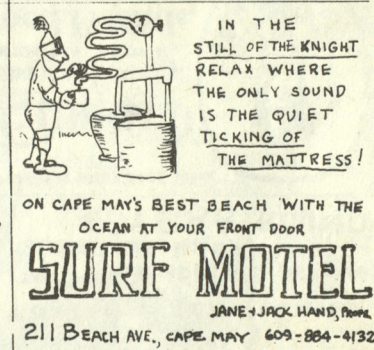 IN THE
STILL OF THE KNIGHT
RELAX WHERE
THE ONLY SOUND
IS THE QUIET
TICKING OF
THE MATTRESS!
ON CAPE MAY'S BEST BEACH WITH THE
OCEAN AT YOUR FRONT DOOR
SURF MOTEL
JANE & JACK HAND, PROPS.
211 BEACH AVE., CAPE MAY 609-884-4132